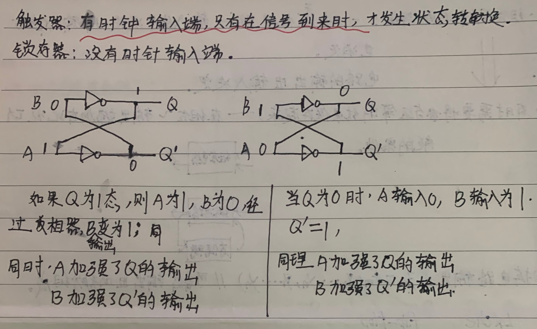 触发器：有时钟输入端，只有在信号到来时，才发生状态转换.
锁存器：没有时钟输入端.
B 0 1 Q
A 1 0 Q'
B 1 0 Q
A 0 1 Q'
如果Q为1态，则A为1，B为0，经
过反相器，B变为1；同
输出
同时·A加强了Q的输出
B加强了Q'的输出
当Q为0时·A输入0，B输入为1.
Q'=1，
同理 A加强了Q的输出
B加强了Q'的输出.